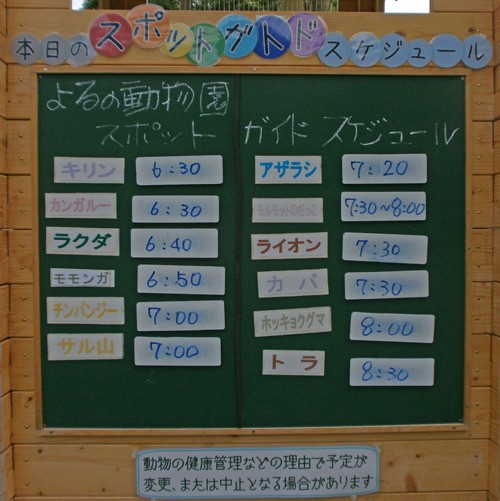 本日のスポットガイドスケジュール
よるの動物園
スポット ガイド スケジュール
キリン 6:30
カンガルー 6:30
ラクダ 6:40
モモンガ 6:50
チンパンジー 7:00
サル山 7:00
アザラシ 7:20
モルモットのだっこ 7:30~8:00
ライオン 7:30
カバ 7:30
ホッキョクグマ 8:00
トラ 8:30
動物の健康管理などの理由で予定が
変更、または中止となる場合があります